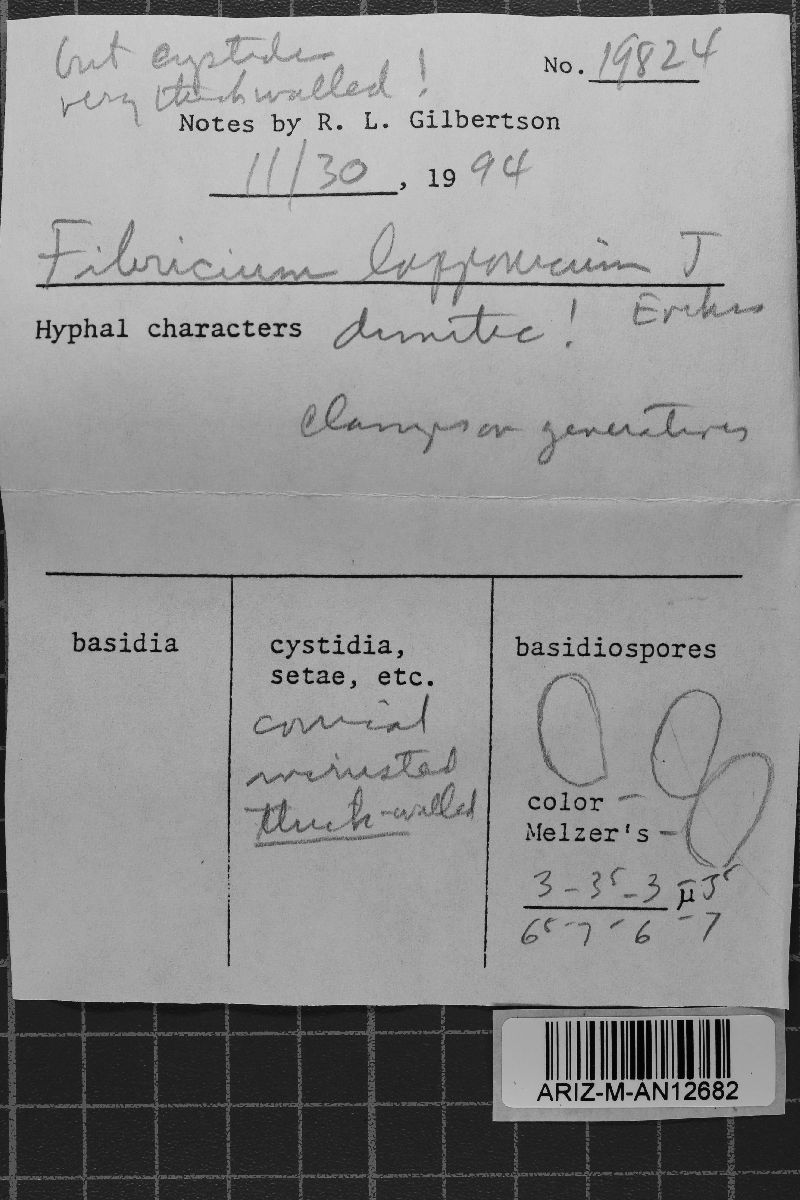 but cystidia
very thick walled!
No. 19824
Notes by R. L. Gilbertson
11/30, 1994
Fibricium lapponicum J
Erikss
Hyphal characters dimitic!
clamps on generatives
basidia
cystidia,
setae, etc.
conical
incrusted
thick-walled
basidiospores
color -
Melzer's -
3 - 3⁵ - 3 μ
6⁵ - 7 - 6 - 7
ARIZ-M-AN12682